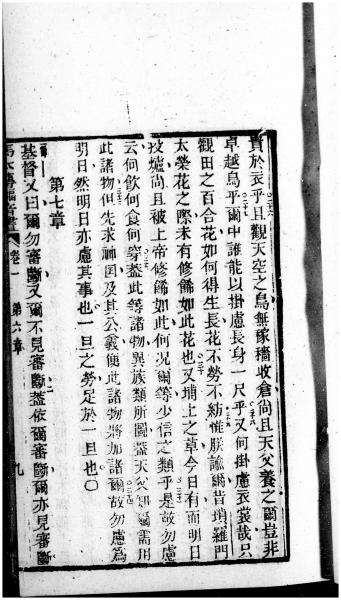 貴於衣乎且觀天空之鳥無稼穡收倉尚且天父養之爾豈非
卓越鳥乎爾中誰能以掛慮長身一尺乎又何掛慮衣裳哉只
觀田之百合花如何得生長花不勞不紡惟朕諭爾昔瑣羅門
太榮花之際未有修飾如此花也又埔上之草今日有而明日
投爐尚且被上帝修飾如此何況爾等少信之類乎是故勿慮
云何飲何食何穿蓋此等諸物異族類所圖蓋天父知爾需用
此諸物但先求神囯及其公義便此諸物將加諸爾故勿慮為
明日然明日亦慮其事也一旦之勞足於一旦也
第七章
基督又曰爾勿審斷又爾不見審斷蓋依爾審斷爾亦見審斷
卷一 第六章 九